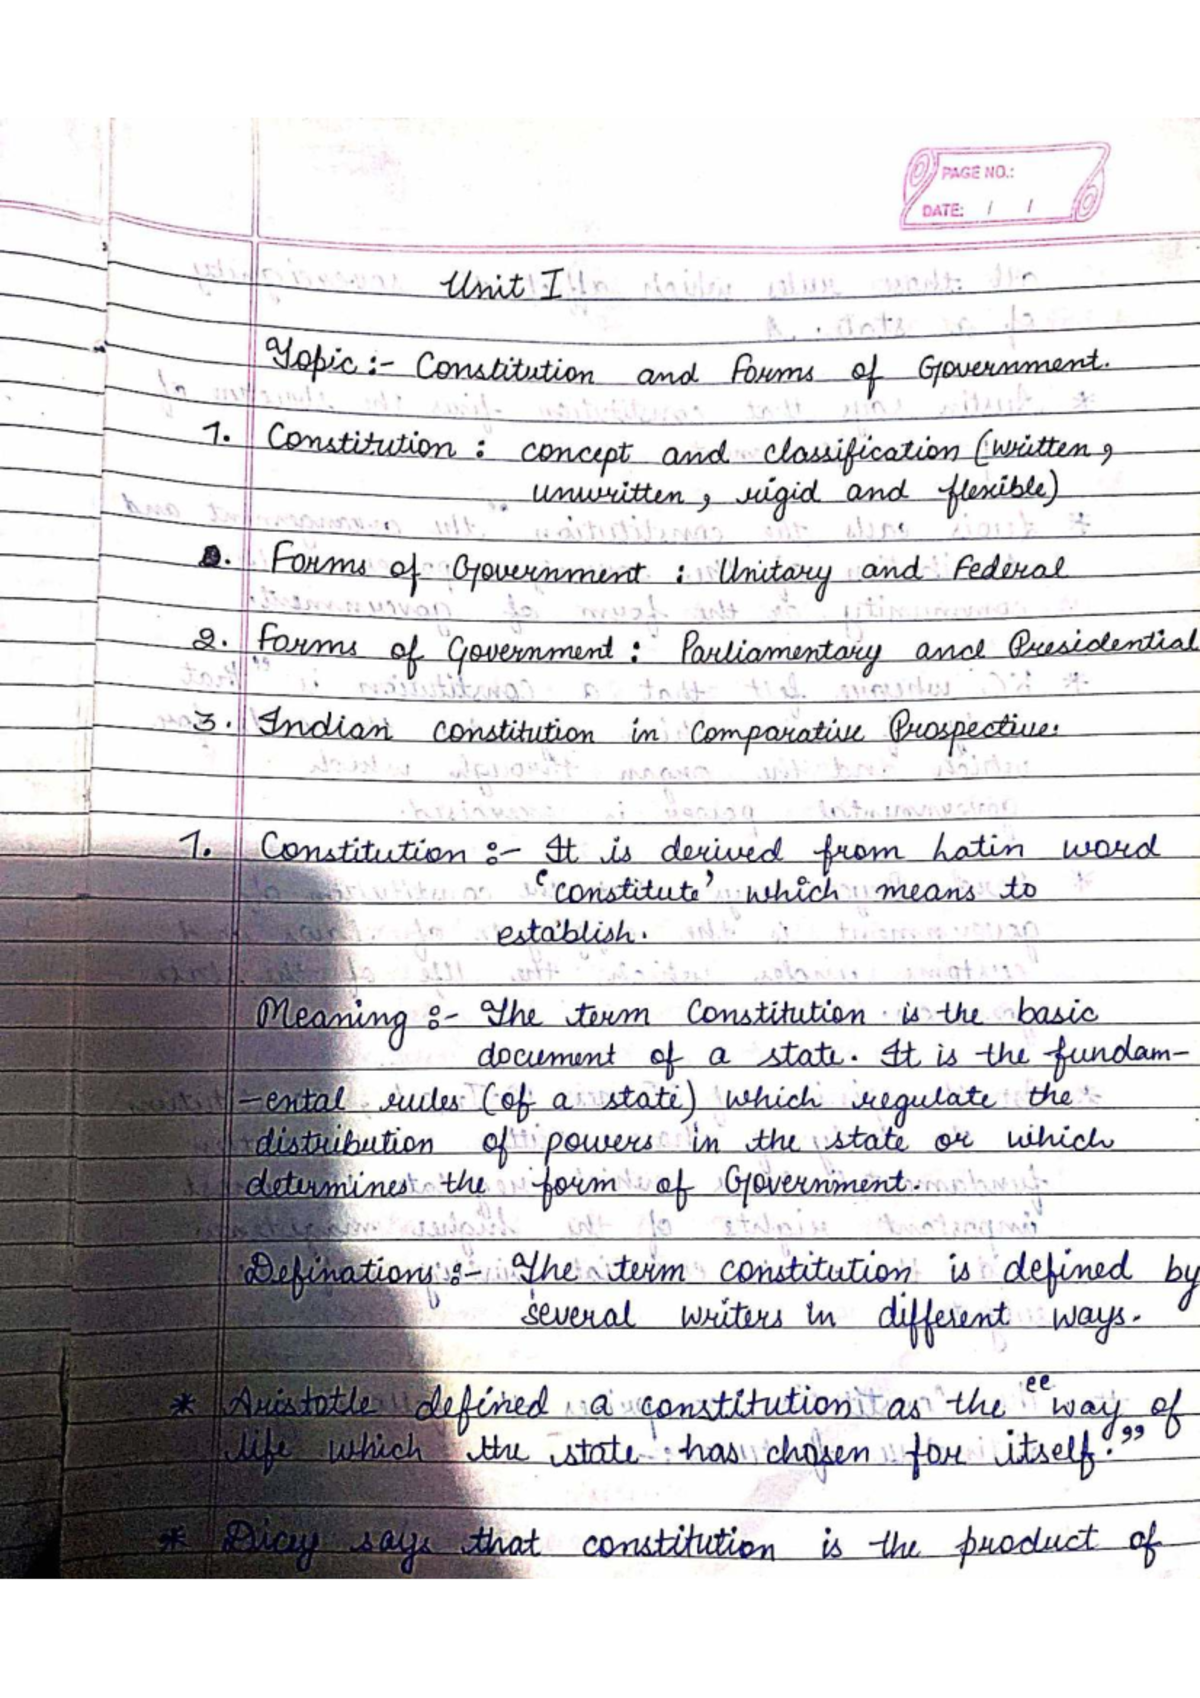 PAGE NO.:
DATE: / /
Unit I
Topic :- Constitution and Forms of Government.
1. Constitution : concept and classification (written ,
unwritten , rigid and flexible)
2. Forms of Government : Unitary and Federal
2. Forms of Government : Parliamentary and Presidential
3. Indian constitution in Comparative Prospective.
1. Constitution :- It is derived from Latin word
‘constitute’ which means to
establish.
Meaning :- The term Constitution is the basic
document of a state. It is the fundam-
-ental rules (of a state) which regulate the
distribution of powers in the state or which
determines the form of Government.
Definations :- The term constitution is defined by
several writers in different ways.
* Aristotle defined a constitution as the “way of
life which the state has chosen for itself.”
* Dicey says that constitution is the product of